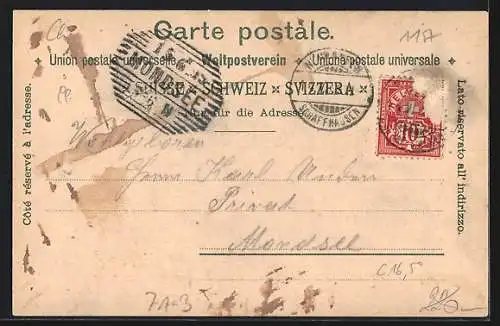 117
Carte postale.
Union postale universelle. Weltpostverein Unione postale universale
SUISSE SCHWEIZ SVIZZERA
Nur für die Adresse
Côté réservé à l'adresse.
Lato riservato all' indirizzo.
MONDSEE
SCHAFFHAUSEN
10
Wohlgeboren
Herrn Karl
Privat
Mondsee
C 16,5